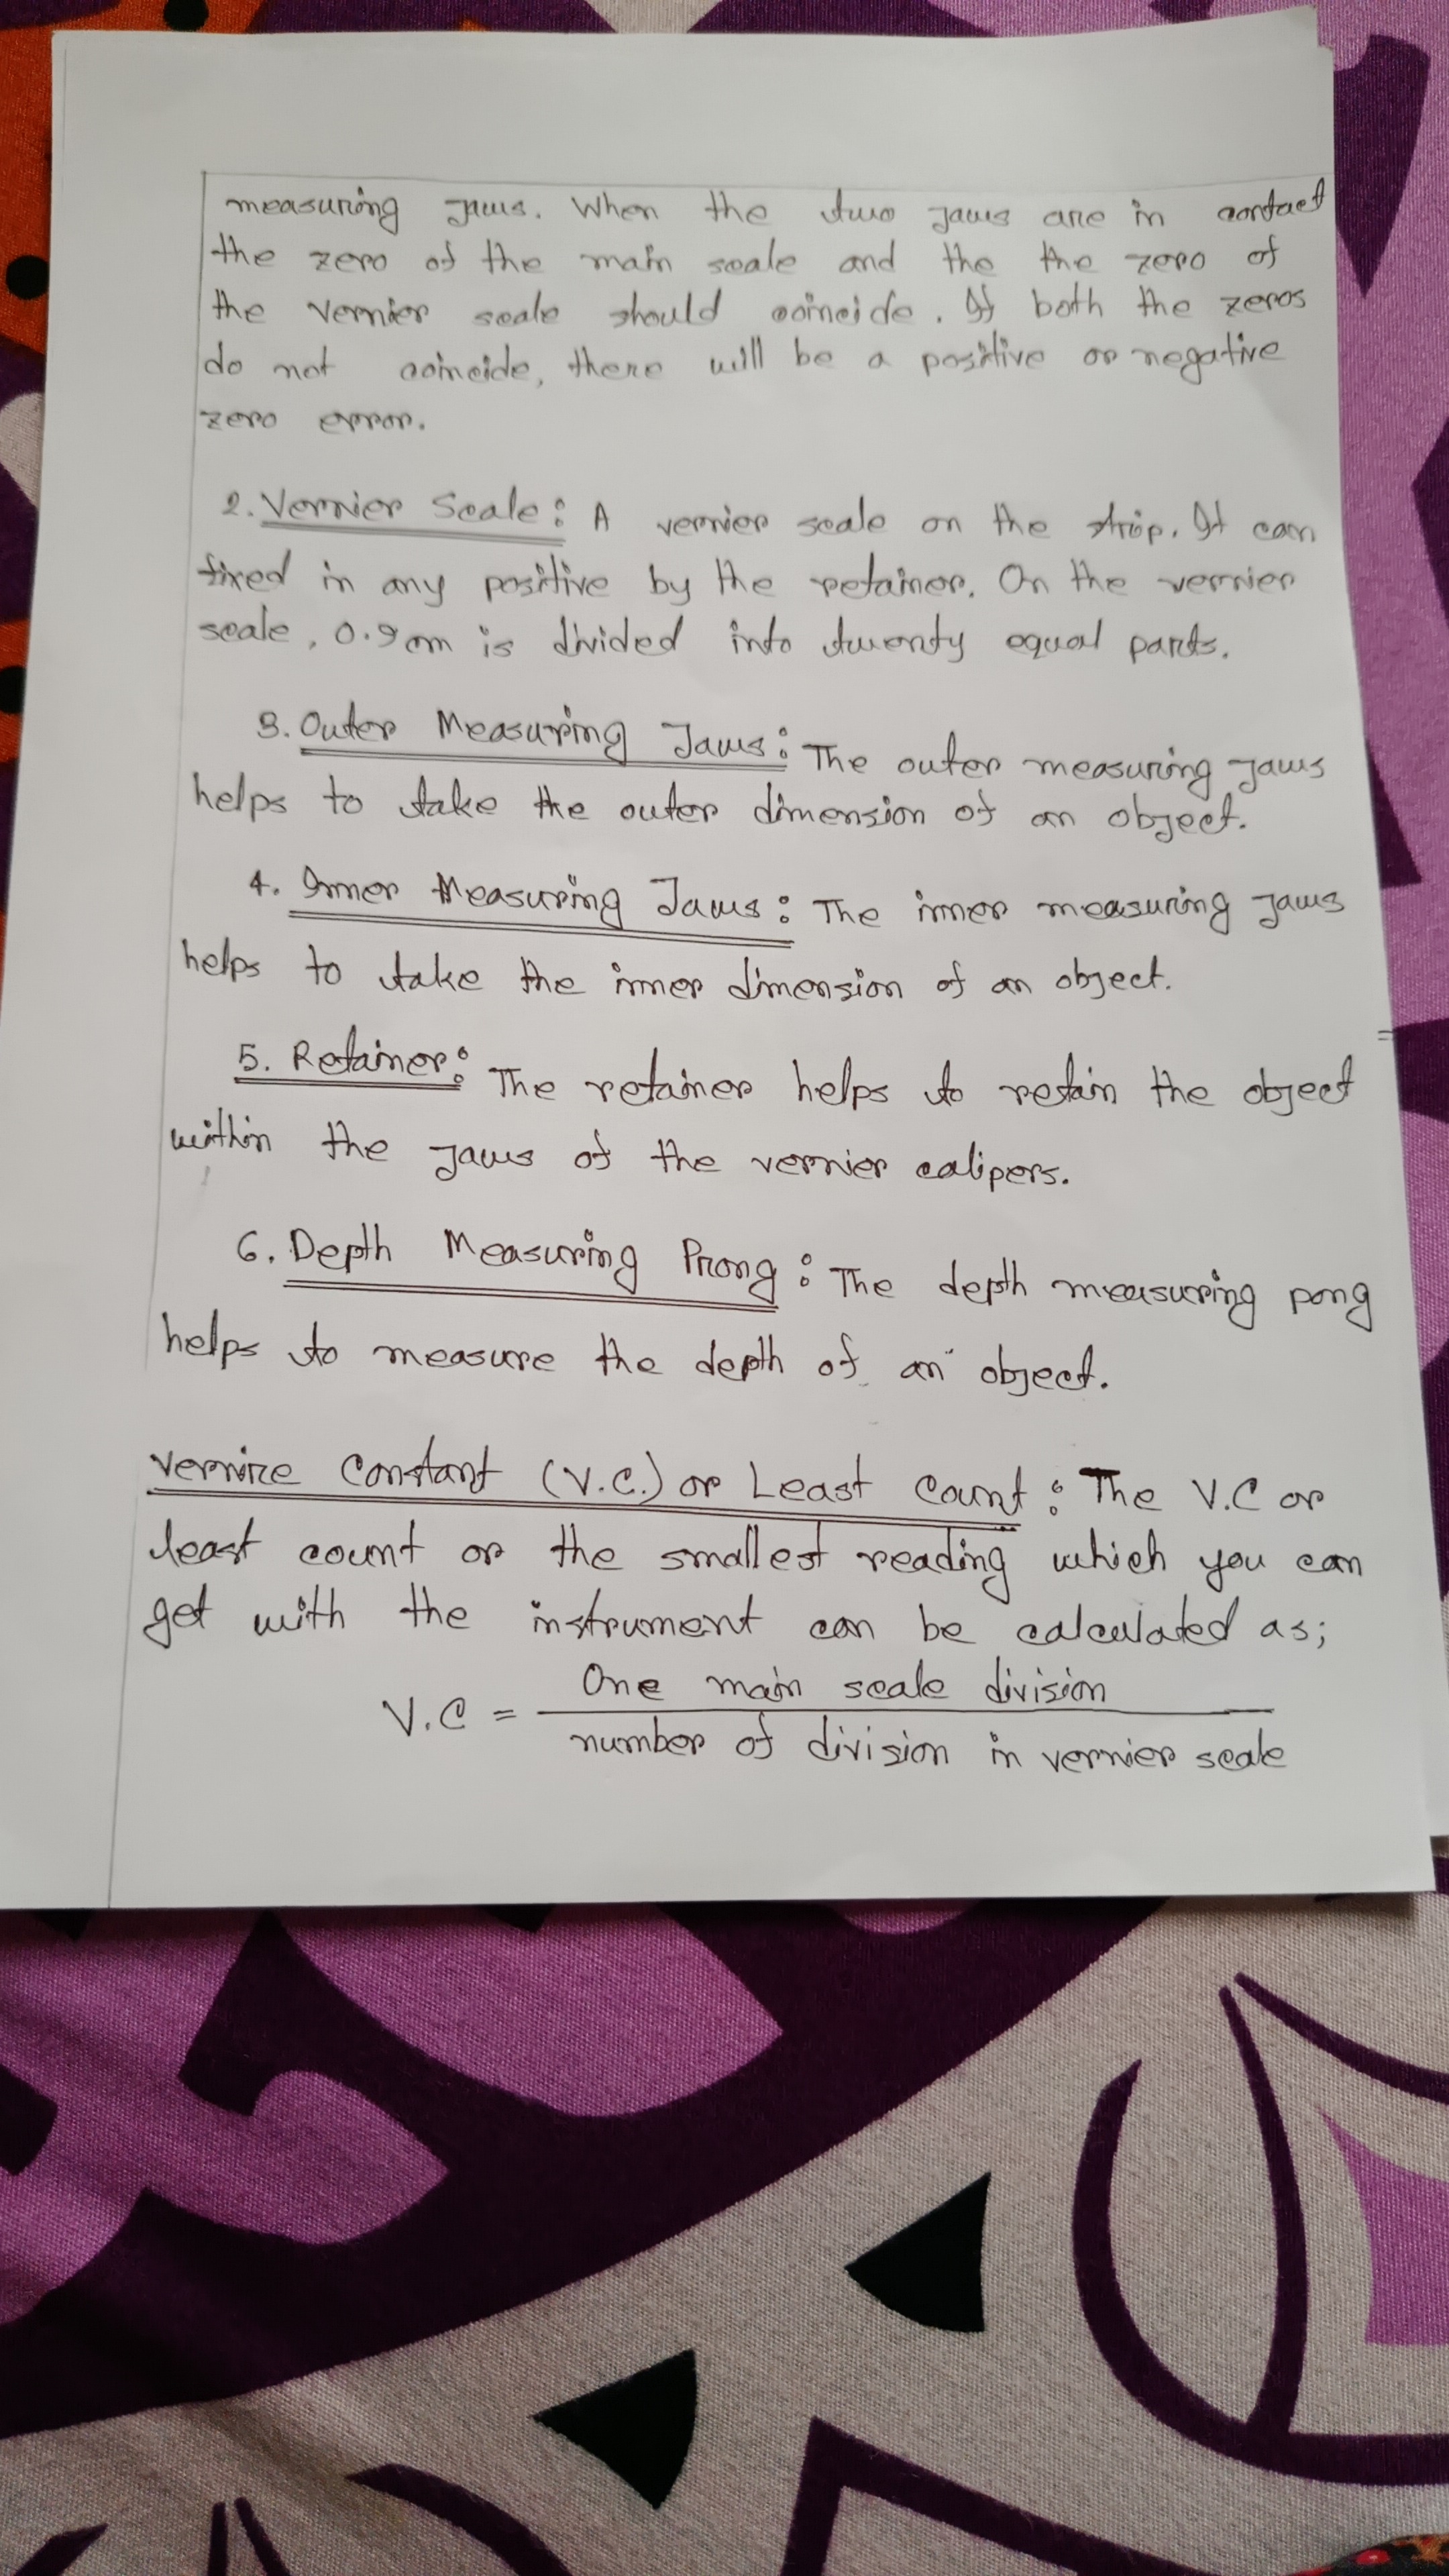 measuring jaws. When the two jaws are in contact
the zero of the main scale and the the zero of
the vernier scale should coincide. If both the zeros
do not coincide, there will be a positive or negative
zero error.
2. Vernier Scale: A vernier scale on the strip. It can
fixed in any positive by the retainer. On the vernier
scale, 0.9cm is divided into twenty equal parts.
3. Outer Measuring Jaws: The outer measuring jaws
helps to take the outer dimension of an object.
4. Inner Measuring Jaws: The inner measuring jaws
helps to take the inner dimension of an object.
5. Retainer: The retainer helps to retain the object
within the jaws of the vernier calipers.
6. Depth Measuring Prong: The depth measuring pong
helps to measure the depth of an object.
Vernire Constant (V.C.) or Least Count: The V.C or
least count or the smallest reading which you can
get with the instrument can be calculated as;
V.C = One main scale division
number of division in vernier scale